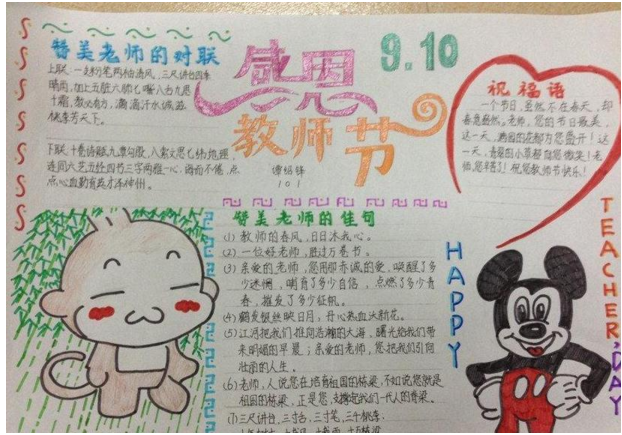 赞美老师的对联
上联:一支粉笔两袖清风,三尺讲台四季
晴雨,加上五脏六腑七嘴八舌九思
十霜,教必有方,滴滴汗水诚滋
桃李芳天下。
下联:十卷诗赋九章勾股,八索文思七纬地理,
连同六艺五经四书三字两雅一心,诲而不倦,点
点心血勤育英才泽神州。
感恩
教师节
9.10
101
祝福语
一个节日,虽然不在春天,却
这一天,
赞美老师的佳句
(1) 教师的春风,日日沐我心。
(2) 一位好老师,胜过万卷书。
(3) 亲爱的老师,您用那赤诚的爱,唤醒了多
少迷惘,哺育了多少自信,点燃了多少青
春,摧发了多少征帆。
(4) 鬓发银丝映日月,丹心热血沃新花。
(5) 江河把我们推向浩瀚的大海,曙光给我们带
来明媚的早晨;亲爱的老师,您把我们引向
壮丽的人生。
(6) 老师,人说您在培育祖国的栋梁,不如说您就是
祖国的栋梁,正是您,支撑起我们一代人的脊梁。
(7) 三尺讲台,三寸舌,三寸笔,三千桃李;
HAPPY
TEACHER'DAY